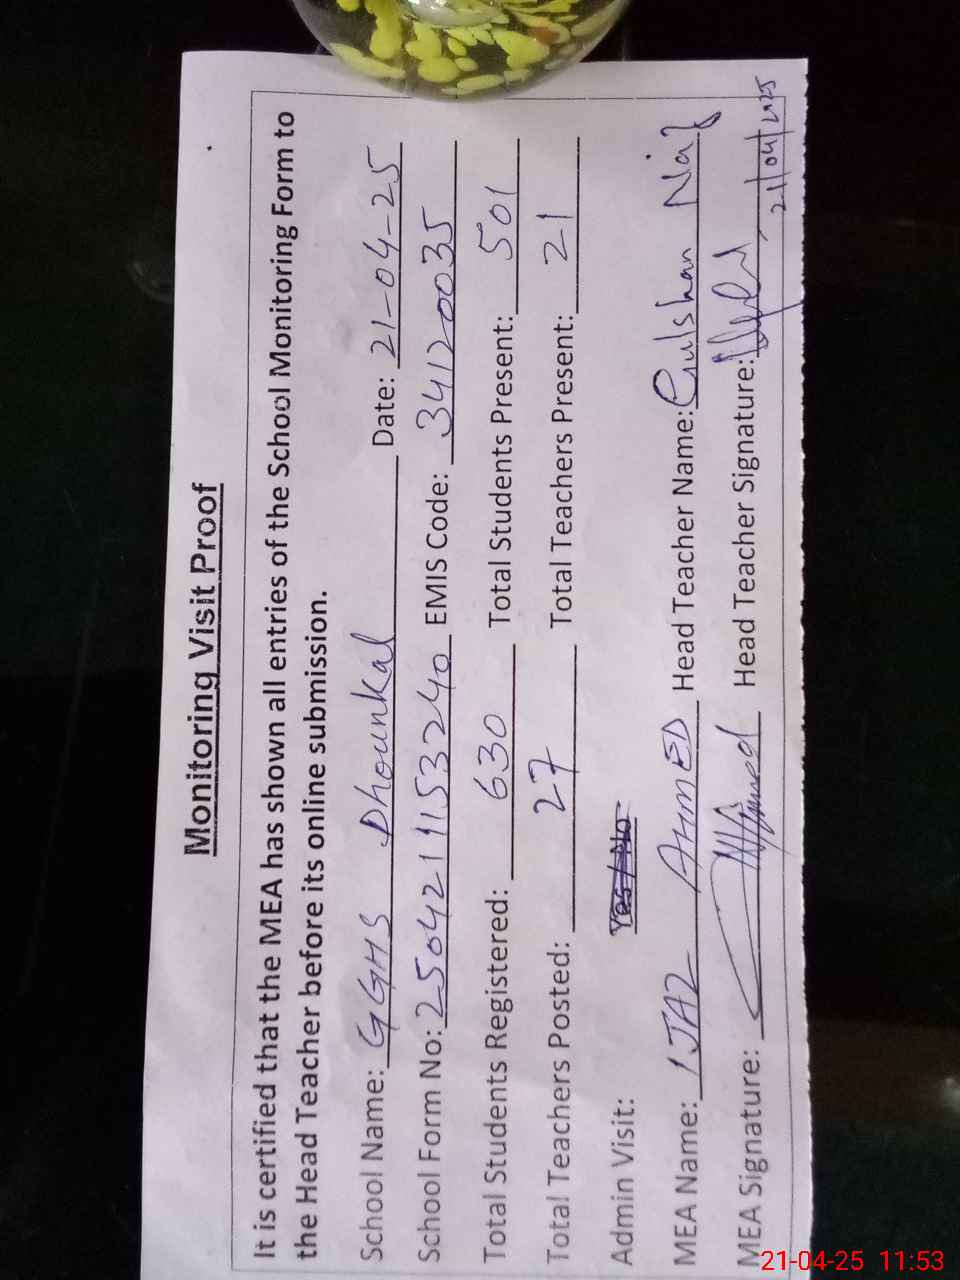 Monitoring Visit Proof
It is certified that the MEA has shown all entries of the School Monitoring Form to
the Head Teacher before its online submission.
School Name: GGHS Dhounkal Date: 21-04-25
School Form No: 2504211153240 EMIS Code: 34120035
Total Students Registered: 630 Total Students Present: 501
Total Teachers Posted: 27 Total Teachers Present: 21
Admin Visit: Yes / No
MEA Name: IJAZ AHMED Head Teacher Name: Gulshan Naz
MEA Signature: Head Teacher Signature:
21/04/2025
21-04-25 11:53